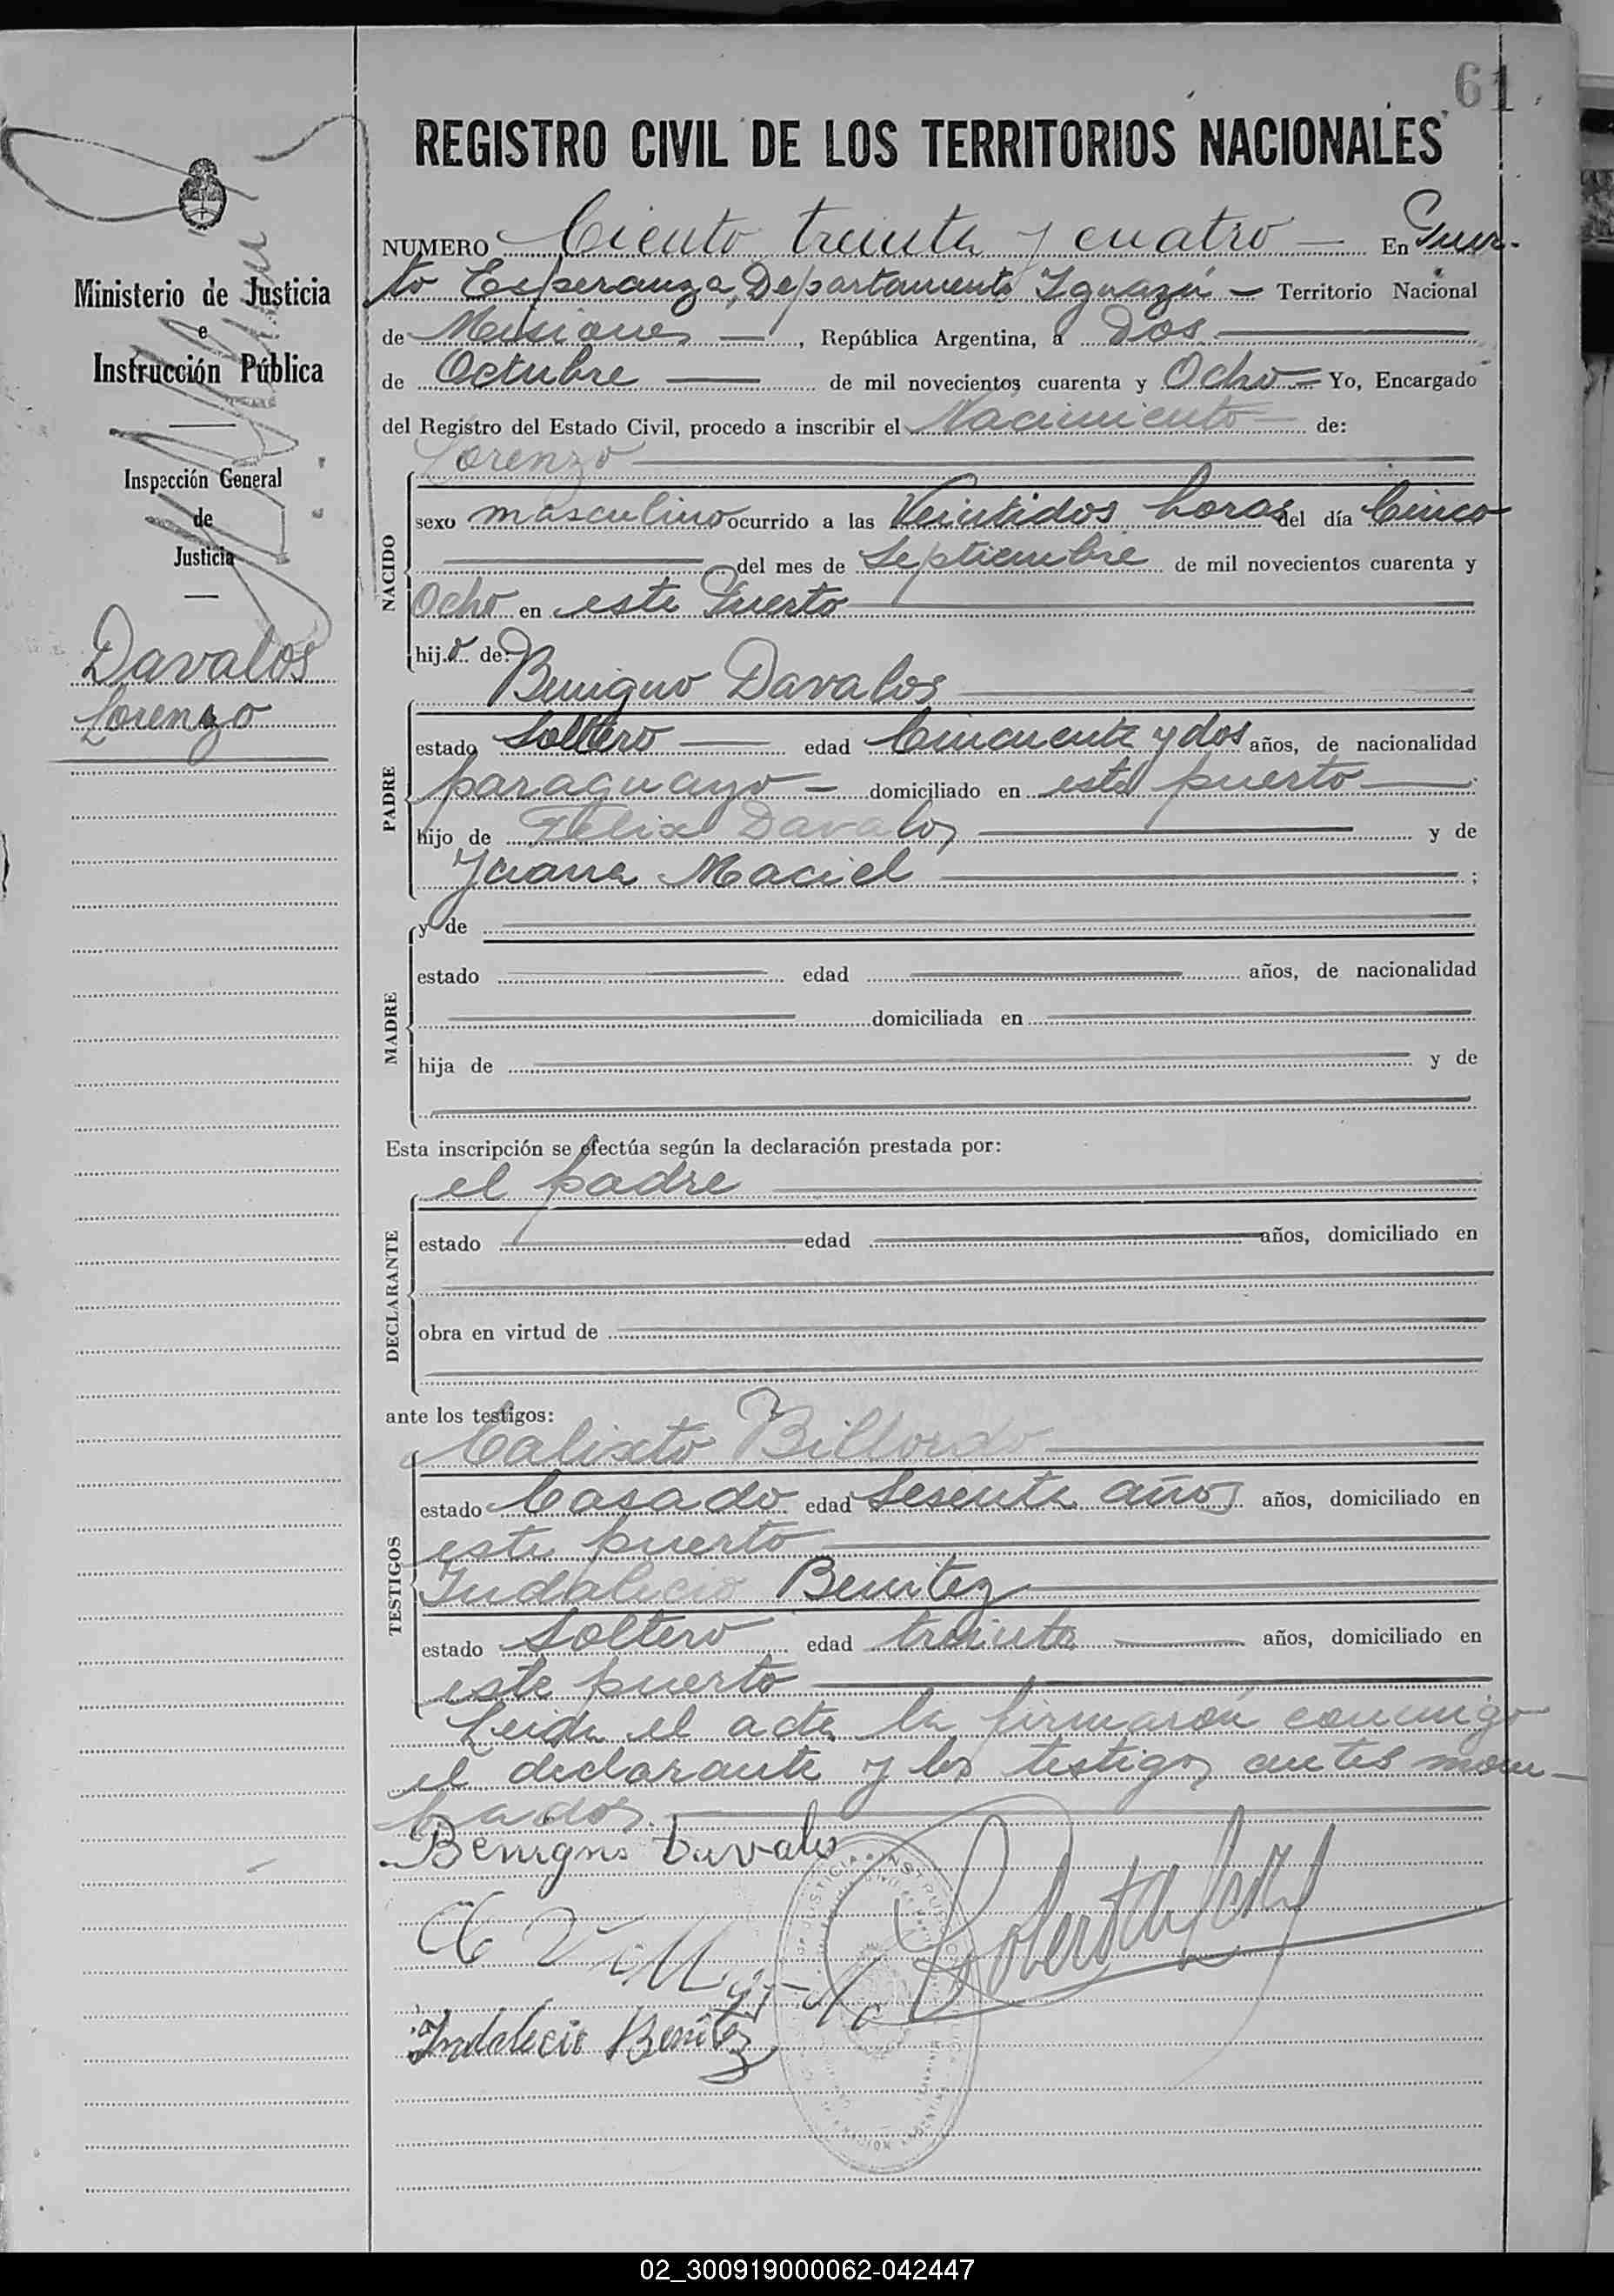 61
REGISTRO CIVIL DE LOS TERRITORIOS NACIONALES
Ministerio de Justicia
e
Instrucción Pública
Inspección General
de
Justicia
Davalos
Lorenzo
NUMERO Ciento treinta y cuatro — En Puer-
to Esperanza, Departamento Iguazú — Territorio Nacional
de Misiones —, República Argentina, a Dos
de Octubre — de mil novecientos cuarenta y Ocho — Yo, Encargado
del Registro del Estado Civil, procedo a inscribir el Nacimiento de:
Lorenzo
NACIDO
sexo masculino ocurrido a las Veintidos horas del día Cinco
del mes de Septiembre de mil novecientos cuarenta y
Ocho en este Puerto
hijo de:
Benigno Davalos
PADRE
estado Soltero — edad Cincuenta y dos años, de nacionalidad
paraguayo — domiciliado en este puerto
hijo de Felix Davalos y de
Juana Maciel ;
MADRE
y de
estado edad años, de nacionalidad
domiciliada en
hija de y de
Esta inscripción se efectúa según la declaración prestada por:
el padre
DECLARANTE
estado edad años, domiciliado en
obra en virtud de
ante los testigos:
Calixto Billordo
TESTIGOS
estado Casado edad Sesenta años años, domiciliado en
este puerto
Indalecio Benitez
estado Soltero edad treinta — años, domiciliado en
este puerto
Leida el acta la firmarón conmigo
el declarante y los testigos antes mom-
bados.
Benigno Davalos
Indalecio Benitez
02_300919000062-042447